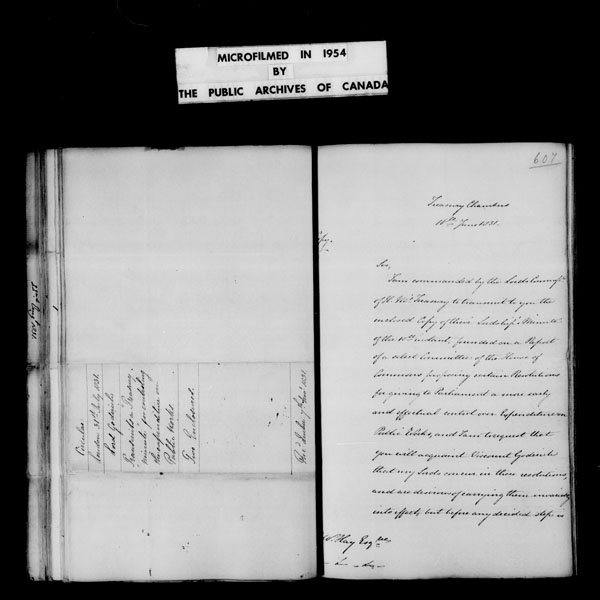 MICROFILMED IN 1954
BY
THE PUBLIC ARCHIVES OF CANADA
Circular
London 31st July 1831
Lord Goderich
Transmits Treasury
Minute for controlling
the expenditure on
Public Works
Two Enclosures
607
Treasury Chambers
June 1831.
Sir,
I am commanded by the Lords Commrs
of H. My's Treasury to transmit to you the
enclosed Copy of their Lordships Minute
of the instant, founded on a Report
of a select Committee of the House of
Commons proposing certain Resolutions
for giving to Parliament a more early
and effectual control over Expenditure on
Public Works, and I am to request that
you will acquaint Viscount Goderich
that my Lords concur in these resolutions,
and are desirous of carrying them invariably
into effect, but before any decided step is
Hay Esqre